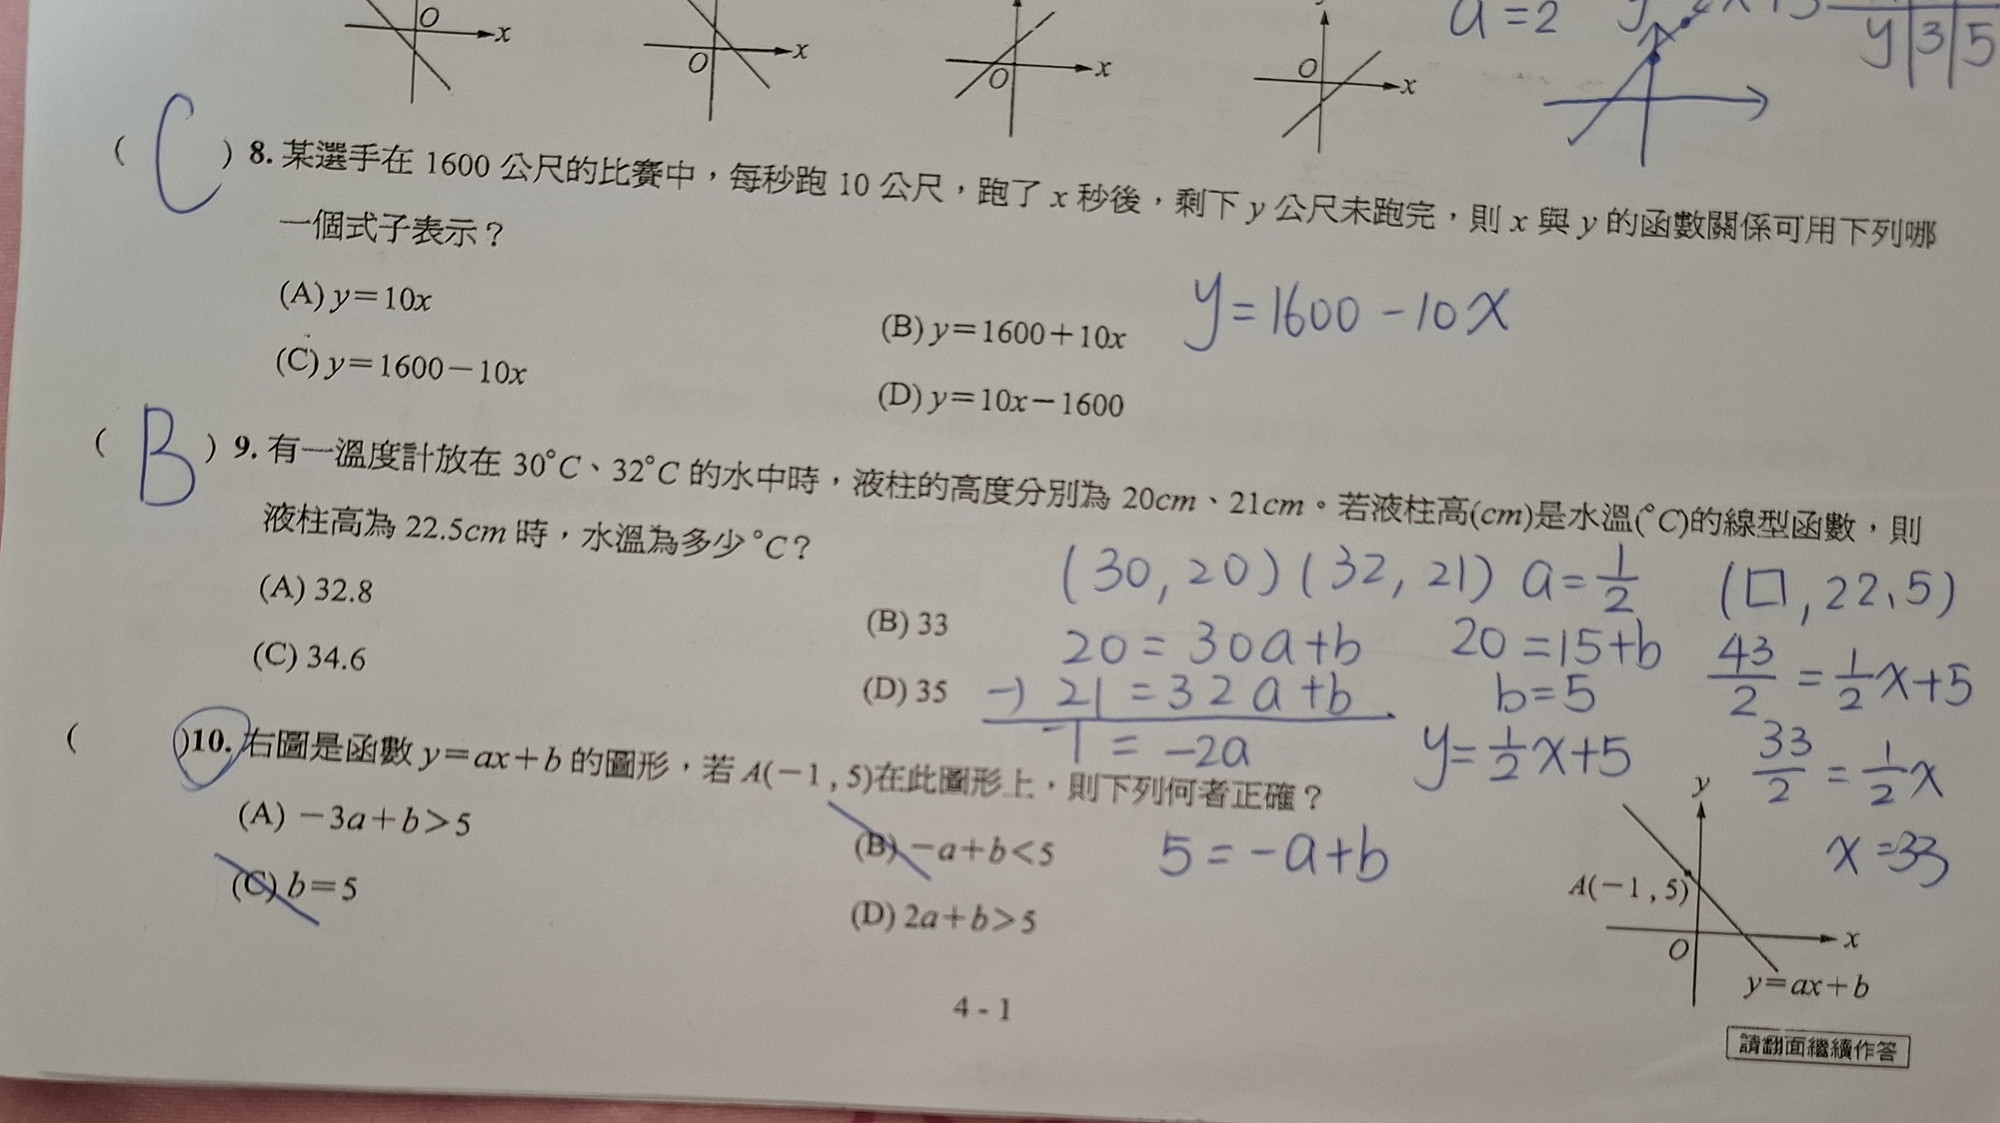 O x
O x
O x
O x
a=2
y 3 5
( C ) 8. 某選手在 1600 公尺的比賽中，每秒跑 10 公尺，跑了 x 秒後，剩下 y 公尺未跑完，則 x 與 y 的函數關係可用下列哪
一個式子表示？
(A) y=10x
(B) y=1600+10x
y=1600-10x
(C) y=1600-10x
(D) y=10x-1600
( B ) 9. 有一溫度計放在 30°C、32°C 的水中時，液柱的高度分別為 20cm、21cm。若液柱高(cm)是水溫(°C)的線型函數，則
液柱高為 22.5cm 時，水溫為多少 °C？
(30,20)(32,21) a=1/2 (□,22.5)
(A) 32.8
(B) 33
20=30a+b 20=15+b 43/2=1/2x+5
(C) 34.6
(D) 35
-) 21=32a+b b=5
-1=-2a y=1/2x+5 33/2=1/2x
x=33
( )10. 右圖是函數 y=ax+b 的圖形，若 A(-1,5)在此圖形上，則下列何者正確？
(A) -3a+b>5
(B) -a+b<5
5=-a+b
(C) b=5
(D) 2a+b>5
y
A(-1,5)
O x
y=ax+b
4-1
請翻面繼續作答